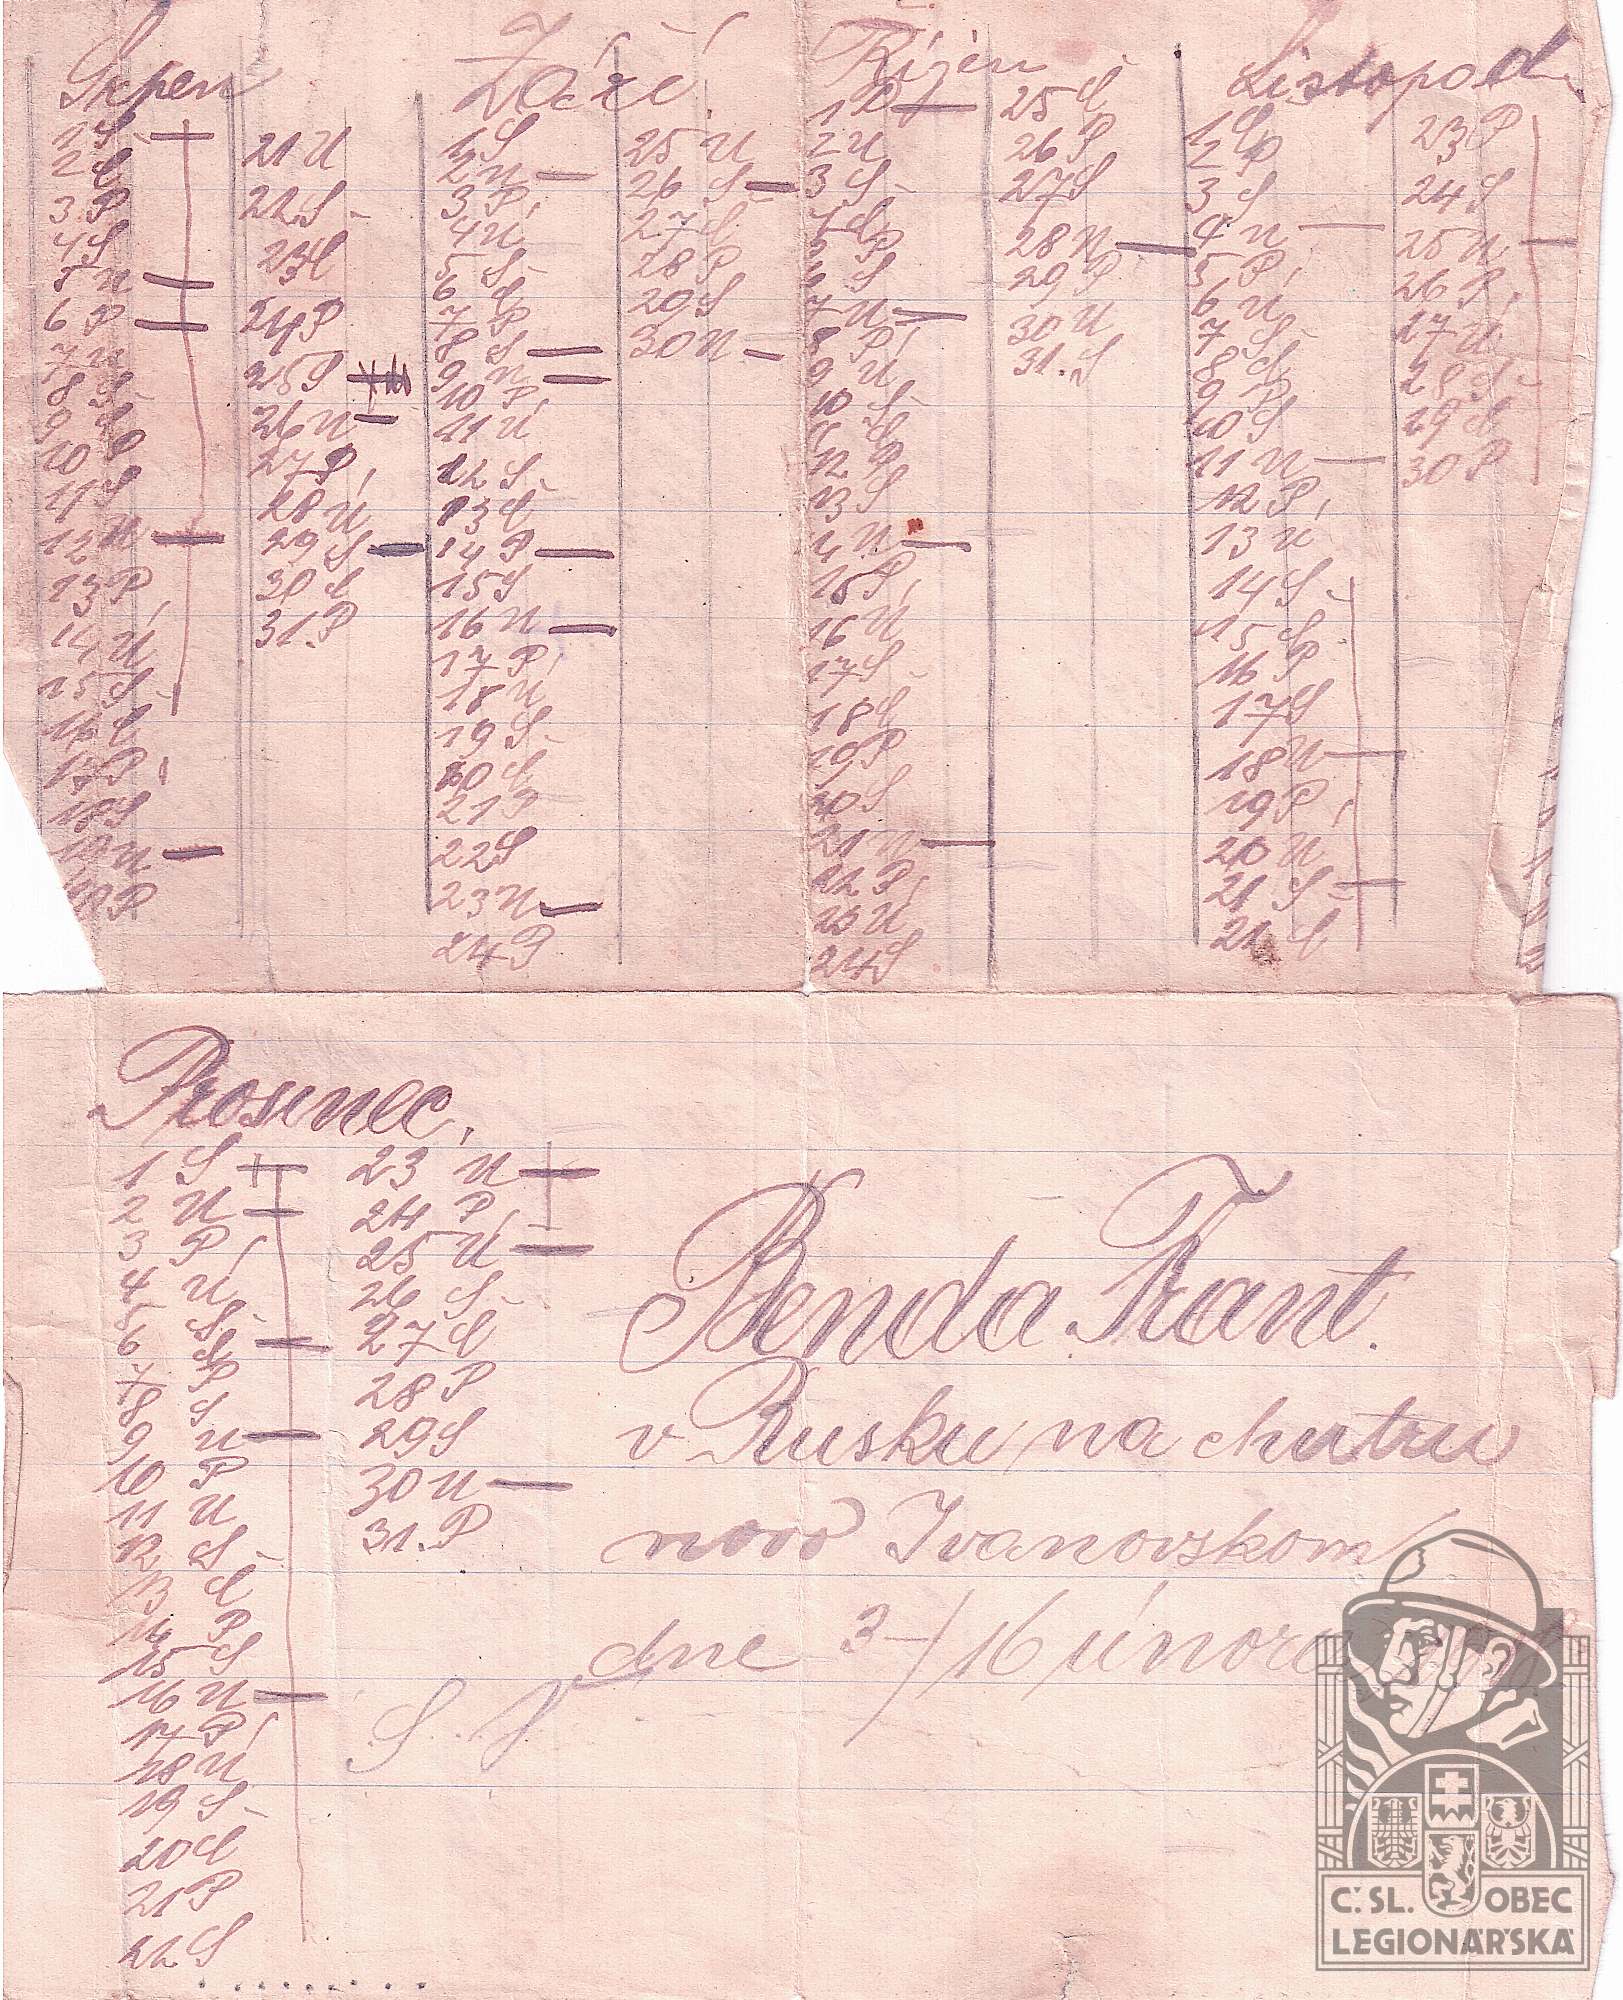 Srpen
1 S
2 Č
3 P
4 S
5 N
6 P
7 Ú
8 S
9 Č
10 P
11 S
12 N
13 P
14 Ú
15 S
16 Č
17 P
18 S
19 N
20 P
21 Ú
22 S
23 Č
24 P
25 S
26 N
27 P
28 Ú
29 S
30 Č
31. P
Září
1 S
2 N
3 P
4 Ú
5 S
6 Č
7 P
8 S
9 N
10 P
11 Ú
12 S
13 Č
14 P
15 S
16 N
17 P
18 Ú
19 S
20 Č
21 P
22 S
23 N
24 P
25 Ú
26 S
27 Č
28 P
29 S
30 N
Říjen
1 P
2 Ú
3 S
4 Č
5 P
6 S
7 N
8 P
9 Ú
10 S
11 Č
12 P
13 S
14 N
15 P
16 Ú
17 S
18 Č
19 P
20 S
21 N
22 P
23 Ú
24 S
25 Č
26 P
27 S
28 N
29 P
30 Ú
31. S
Listopad
1 Č
2 P
3 S
4 N
5 P
6 Ú
7 S
8 Č
9 P
10 S
11 N
12 P
13 Ú
14 S
15 Č
16 P
17 S
18 N
19 P
20 Ú
21 S
21 Č
23 P
24 S
25 N
26 P
27 Ú
28 S
29 Č
30 P
Prosinec,
1 S
2 N
3 P
4 Ú
5 S
6 Č
7 P
8 S
9 N
10 P
11 Ú
12 S
13 Č
14 P
15 S
16 N
17 P
18 Ú
19 S
20 Č
21 P
22 S
23 N
24 P
25 Ú
26 S
27 Č
28 P
29 S
30 N
31. P
Benda Frant.
v Rusku na chutru
novo Ivanovskom
dne 3-/16 února
Č. SL. OBEC
LEGIONÁŘSKÁ